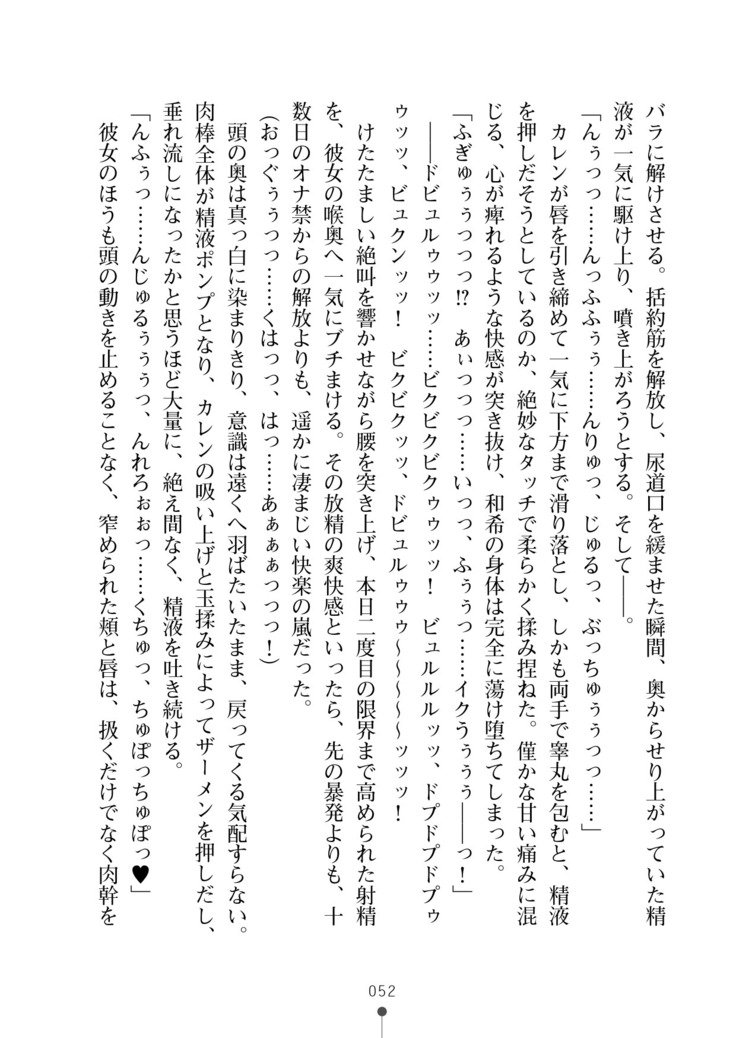 バラに解けさせる。括約筋を解放し、尿道口を緩ませた瞬間、奥からせり上がっていた精
液が一気に駆け上り、噴き上がろうとする。そして――。
「んぅっっ……んっふふぅぅ……んりゅっ、じゅるっ、ぶっちゅぅぅっっ……」
カレンが唇を引き締めて一気に下方まで滑り落とし、しかも両手で睾丸を包むと、精液
を押しだそうとしているのか、絶妙なタッチで柔らかく揉み捏ねた。僅かな甘い痛みに混
じる、心が痺れるような快感が突き抜け、和希の身体は完全に蕩け堕ちてしまった。
「ふぎゅぅぅっっっ!? あぃっっっ……いっっ、ふぅぅっ……イクうぅぅぅ――っ！」
――ドビュルゥゥッッ……ビクビクビクゥゥッッ！ ビュルルルッッ、ドプドプドプゥ
ゥッッ、ビュクンッッ！ ビクビクッッ、ドビュルゥゥゥ～～～～～ッッッ！
けたたましい絶叫を響かせながら腰を突き上げ、本日二度目の限界まで高められた射精
を、彼女の喉奥へ一気にブチまける。その放精の爽快感といったら、先の暴発よりも、十
数日のオナ禁からの解放よりも、遥かに凄まじい快楽の嵐だった。
（おっぐぅぅっっ……くはっっ、はっ……あぁぁぁっっっ！）
頭の奥は真っ白に染まりきり、意識は遠くへ羽ばたいたまま、戻ってくる気配すらない。
肉棒全体が精液ポンプとなり、カレンの吸い上げと玉揉みによってザーメンを押しだし、
垂れ流しになったかと思うほど大量に、絶え間なく、精液を吐き続ける。
「んふぅっ……んじゅるぅぅぅっ、んれろぉぉっ……くちゅっ、ちゅぽっちゅぽっ♥」
彼女のほうも頭の動きを止めることなく、窄められた頬と唇は、扱くだけでなく肉幹を
052